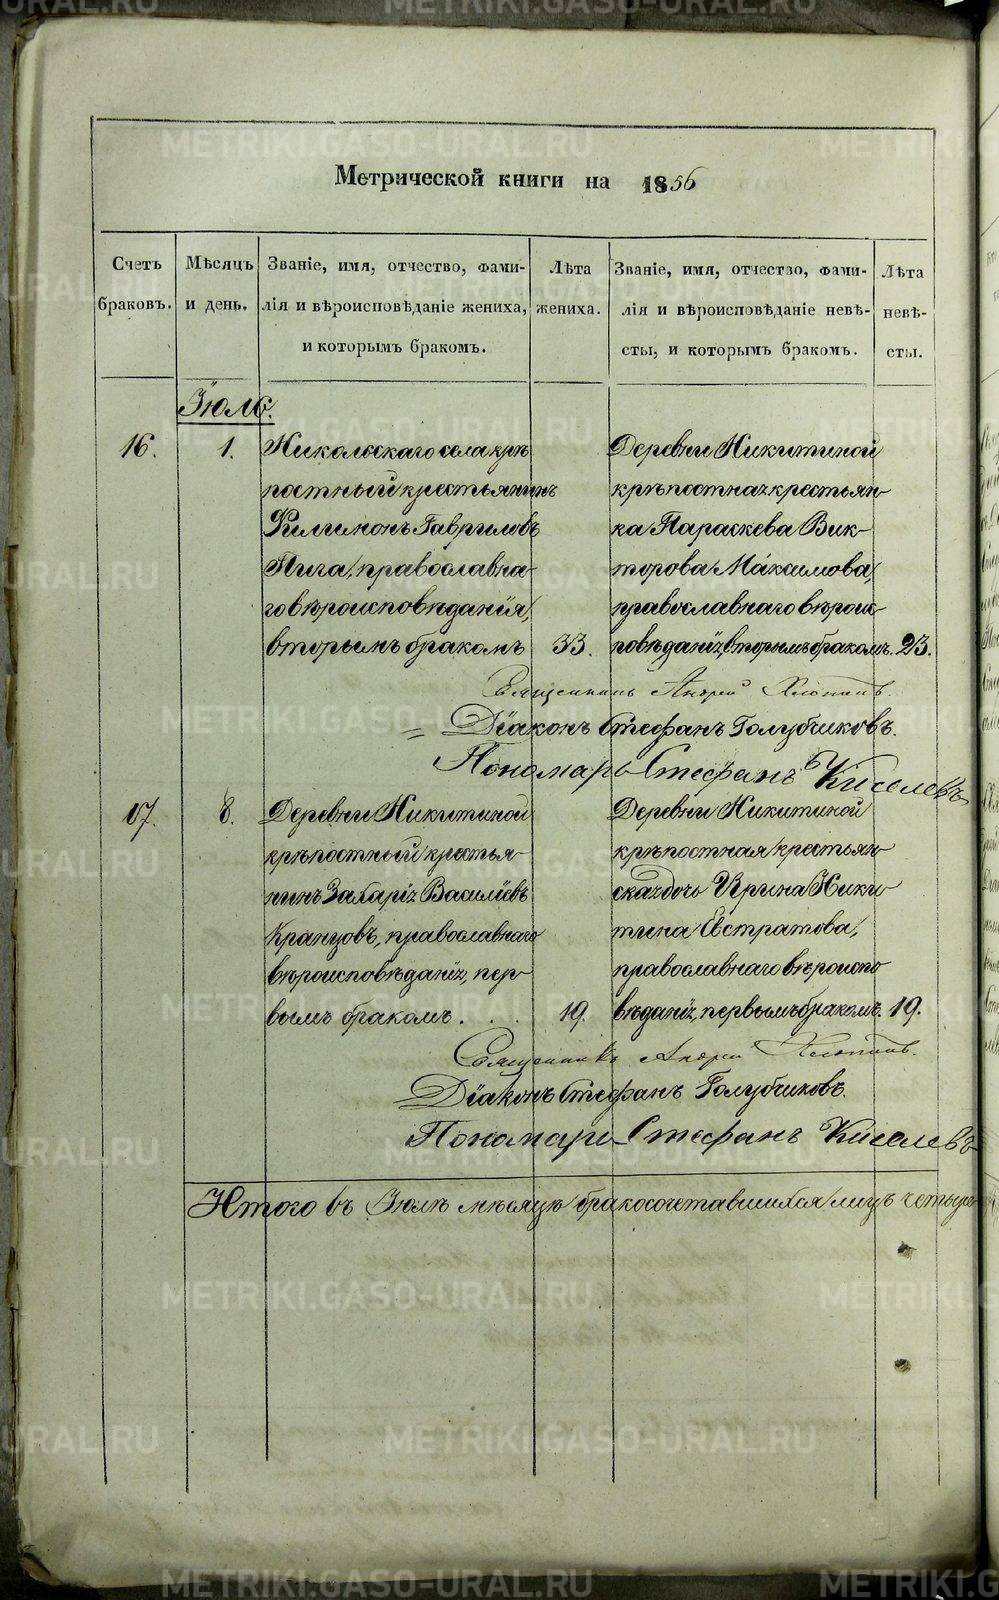 METRIKI.GASO-URAL.RU
Метрической книги на 1856
Счетъ браковъ.
Мѣсяцъ и день.
Званіе, имя, отчество, фами-
лія и вѣроисповѣданіе жениха,
и которымъ бракомъ.
Лѣта жениха.
Званіе, имя, отчество, фами-
лія и вѣроисповѣданіе невѣ-
сты, и которымъ бракомъ.
Лѣта невѣ-
сты.
Іюль.
16. 1.
Никольскаго села крѣ
постный крестьянинъ
Филимонъ Гавриловъ
Пига, православна-
го вѣроисповѣданія,
вторымъ бракомъ 33.
Деревни Никитиной
крѣпостная крестьян-
ка Параскева Вик-
торова Максимова,
православнаго вѣроис-
повѣданія, вторымъ бракомъ. 23.
Священникъ Андрей
Діаконъ Стефанъ Голубчиковъ.
Пономарь Стефанъ Киселевъ
17. 8.
Деревни Никитиной
крѣпостный крестья-
нинъ Захарія Василіевъ
Кранцовъ, православнаго
вѣроисповѣданія, пер-
вымъ бракомъ . . . 19.
Деревни Никитиной
крѣпостная крестьян-
ская дочь Ирина Ники-
тина Евстратова,
православнаго вѣроиспо
вѣданія, первымъ бракомъ. 19.
Священникъ Андрей
Діаконъ Стефанъ Голубчиковъ.
Пономарь Стефанъ Киселевъ
Итого въ Іюлѣ мѣсяцѣ бракосочетавшихся лицъ четыре